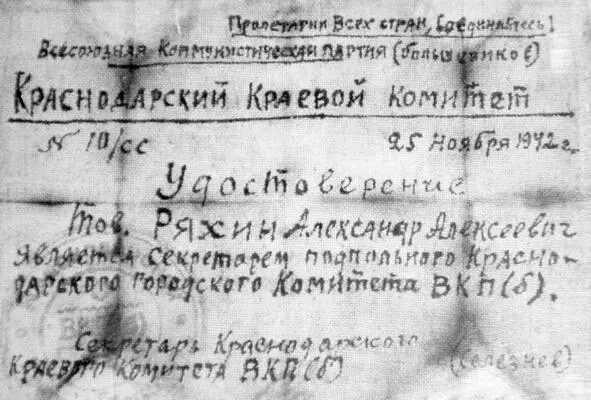 Пролетарии Всех стран, Соединяйтесь!
Всесоюзная Коммунистическая партия (большевиков)
Краснодарский Краевой комитет
№ 10/сс 25 Ноября 1942 г.
Удостоверение
Тов. Ряхин Александр Алексеевич
является секретарем подпольного Красно-
дарского городского Комитета ВКП(б).
Секретарь Краснодарского
Краевого Комитета ВКП(б) (Селезнев)